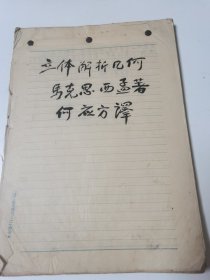 立体解析几何
马克思·西孟著
何衣方譯